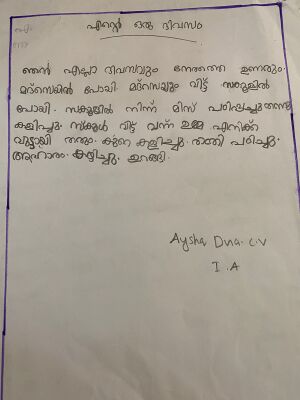 എന്റെ ഒരു ദിവസം
ഞാൻ എല്ലാ ദിവസവും നേരത്തെ ഉണരും.
മദ്റസയിൽ പോയി. മദ്റസയും വിട്ട് സ്കൂളിൽ
പോയി. സ്കൂളിൽ നിന്ന് മിസ് പഠിപ്പിച്ചു
കളിച്ചു. സ്കൂൾ വിട്ട് വന്ന് ഉമ്മ എനിക്ക്
തരും. കുറെ കളിച്ചു. രാത്രി പഠിച്ചു.
ആഹാരം. കഴിച്ചു. ഉറങ്ങി.
Aysha Dua. C.V
I. A